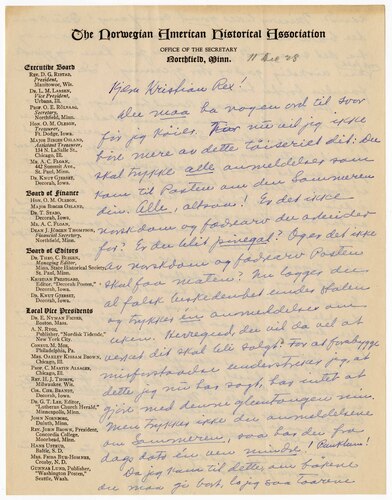 The Norwegian American Historical Association
OFFICE OF THE SECRETARY
Northfield, Minn.
11 Dec 28
Executive Board
Rev. D. G. Ristad,
President,
Manitowoc, Wis.
Dr. L. M. Larsen,
Vice President,
Urbana, Ill.
Prof. O. E. Rölvaag,
Secretary,
Northfield, Minn.
Hon. O. M. Oleson,
Treasurer,
Ft. Dodge, Iowa.
Major Birger Osland,
Assistant Treasurer,
134 N. LaSalle St.,
Chicago, Ill.
Mr. A. C. Floan,
442 Summit Ave.,
St. Paul, Minn.
Dr. Knut Gjerset,
Decorah, Iowa.
Board of Finance
Hon. O. M. Oleson,
Major Birger Osland,
Dr. T. Stabo,
Decorah, Iowa.
Mr. A. C. Floan,
Dean J. Jörgen Thompson,
Financial Secretary,
Northfield, Minn.
Board of Editors
Dr. Theo. C. Blegen,
Managing Editor,
Minn. State Historical Society,
St. Paul, Minn.
Kristian Prestgard,
Editor, "Decorah Posten"
Decorah, Iowa.
Dr. Knut Gjerset,
Decorah, Iowa.
Local Vice Presidents
Dr. E. Nyman Figved,
Boston, Mass.
A. N. Rygg,
Publisher, "Nordisk Tidende,"
New York City.
Conrad M.
Philadelphia, Pa.
Mrs. Oakley Kissam Brown,
Chicago, Ill.
Prof. C. Martin Alsager,
Chicago, Ill.
Rev. H. J. Thorpe,
Milwaukee, Wis.
Chr. Chr. Brandt,
Decorah, Iowa.
Dr. G. T. Lee, Editor,
"Lutheran Herald,"
Minneapolis, Minn.
John Nordberg,
Duluth, Minn.
Rev. John Brown, President,
Concordia College,
Moorhead, Minn.
Hans
Baltic, S. D.
Mrs.
Crosby, N. D.
Gunnar Lund, Publisher,
"Washington Posten,"
Seattle, Wash.
Kjære Kristian Rex!
Du maa ha nogen ord til svar
før jeg köies. Saa nu vil jeg ikke
høre mere av dette töiseriet dit: Du
skal trykke alle anmeldelser som
kom til Posten om den Sommeren
din. Alle, altsaa! Er det ikke
norskdom og fædrearv du arbeider
for? Er du blit pinegal? Og er det ikke
av norskdom og fædrearv Posten
skal faa maten? Nu lægger du
al falsk beskedenhet under stolen
og trykker en anmeldelse om
uken. Herregud, du vil da vel at
verset dit skal bli solgt? For at forebygge
misforstaaelse understreker jeg, at
dette jeg nu har sagt, har intet at
gjöre med den glentongen min.
Men trykker ikke du anmeldelsene
om Sommeren, saa har du fra
dags dato en ven mindre! Punktum!
Da jeg kom til dette, om bökene
du maa gi bort, lo jeg saa taarene